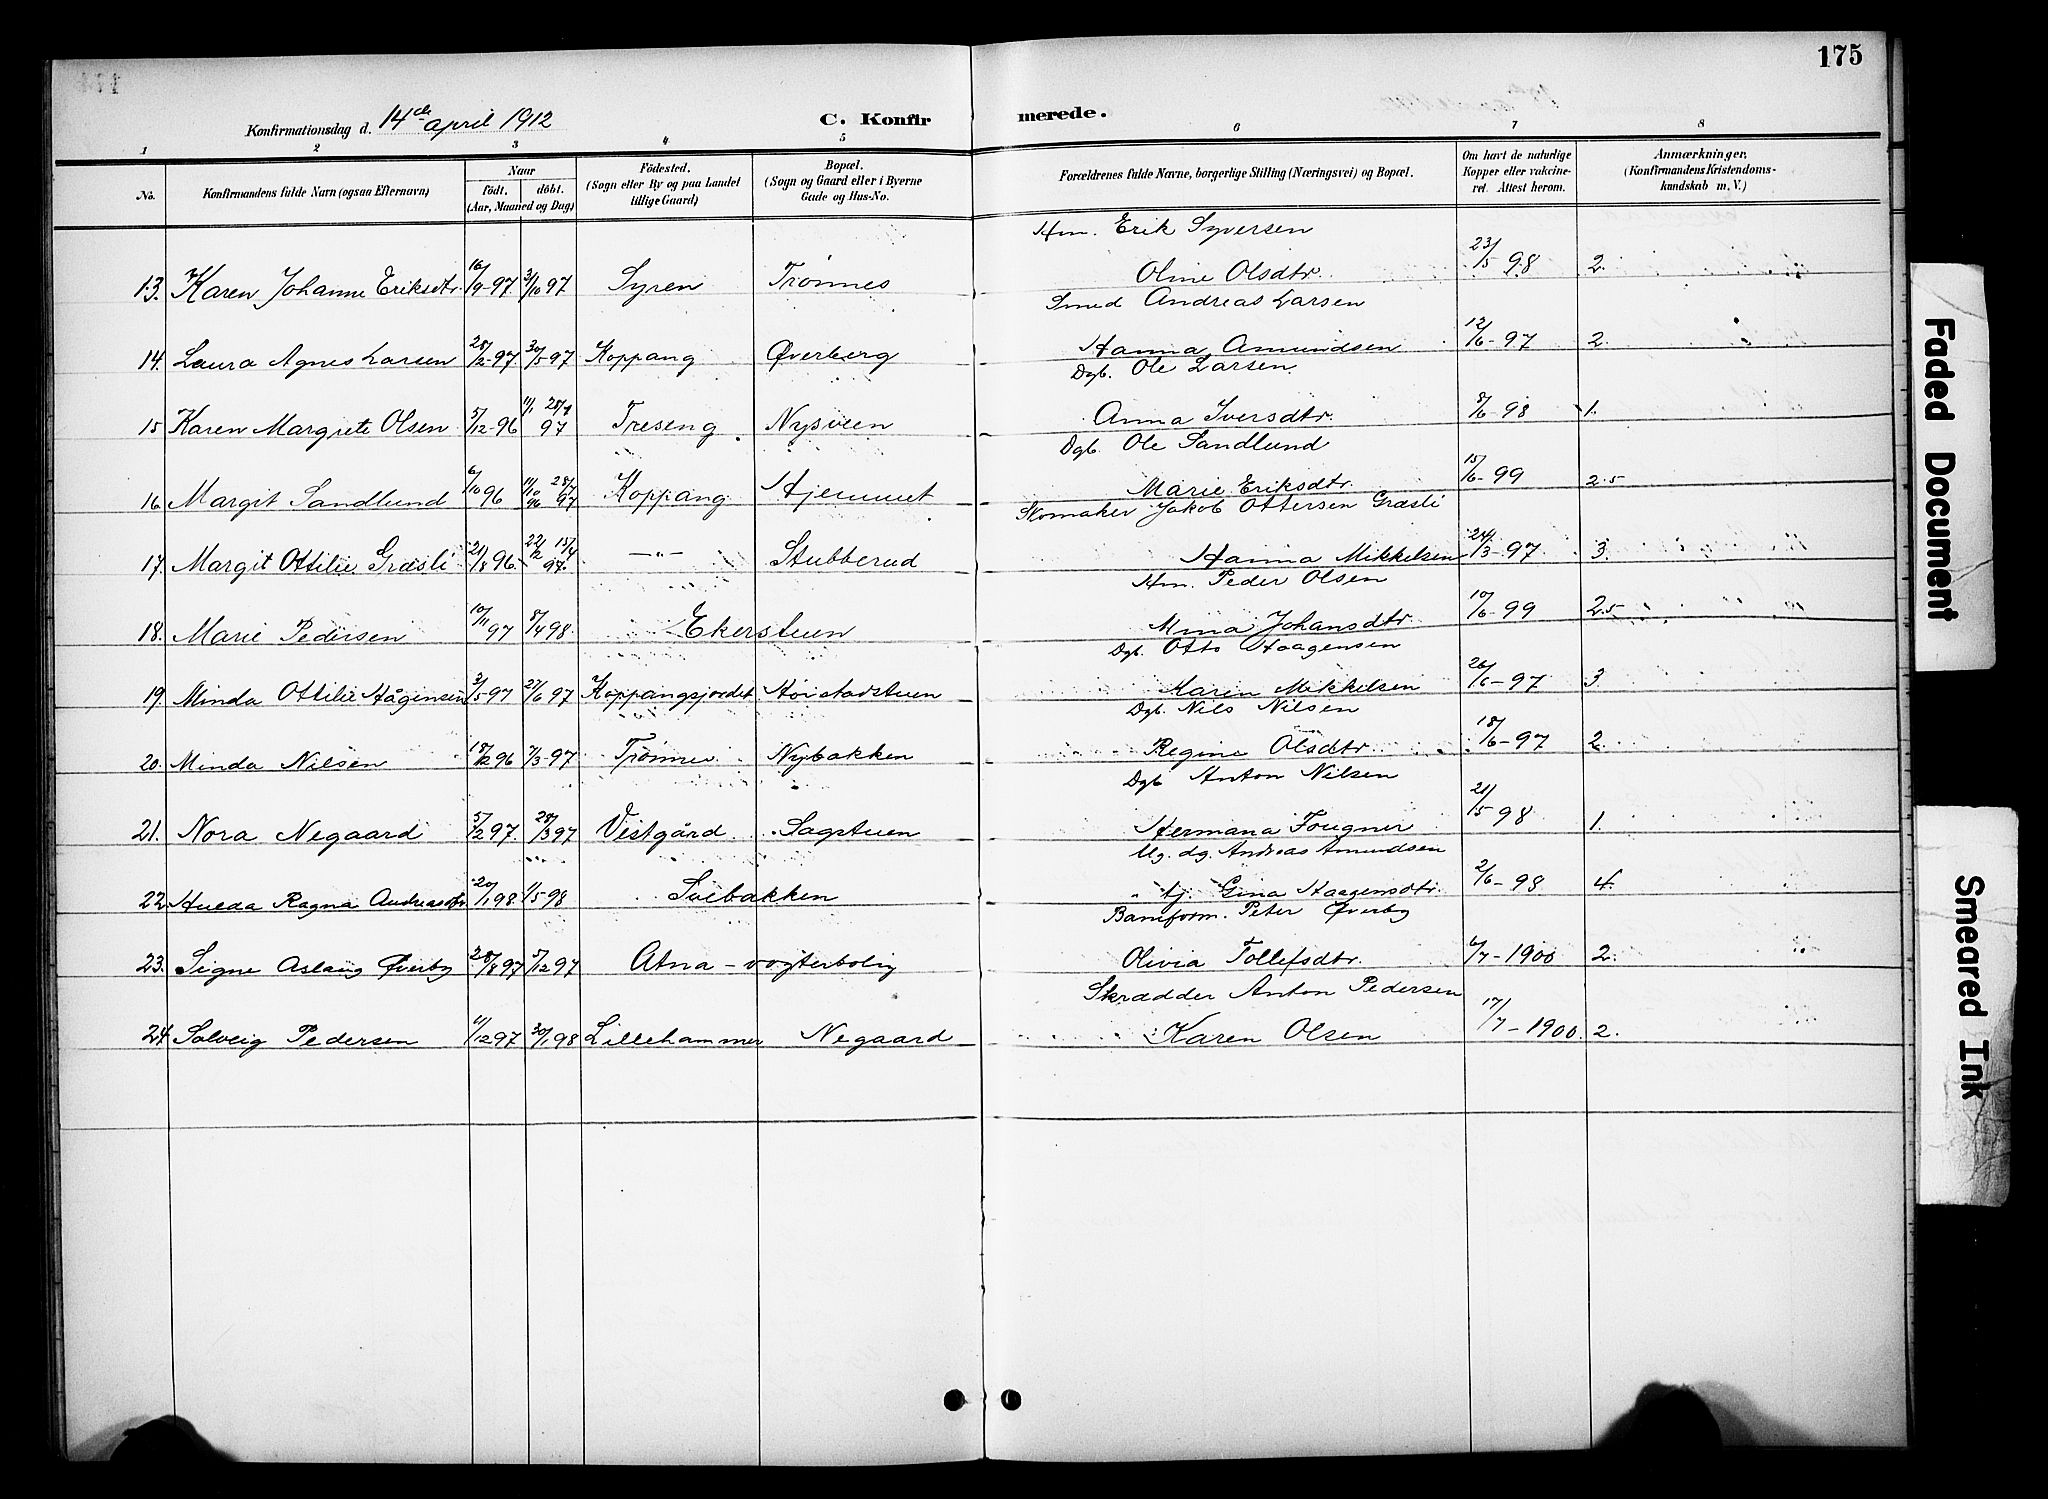 175
Konfirmationsdag d. 14de april 1912
C. Konfir merede.
1 2 3 4 5 6 7 8
No.
Konfirmandens fulde Navn (ogsaa Efternavn)
Naar
födt. döbt.
(Aar, Maaned og Dag)
Födested.
(Sogn eller By og paa Landet
tillige Gaard)
Bopæl.
(Sogn og Gaard eller i Byerne
Gade og Hus-No.
Forældrenes fulde Navne, borgerlige Stilling (Næringsvei) og Bopæl.
Om havt de naturlige
Kopper eller vakcine-
ret. Attest herom.
Anmærkninger,
(Konfirmandens Kristendoms-
kundskab m. V.)
Hm. Erik Syversen
13. Karen Johanne Eriksdtr. 16/9-97 3/10 97 Syren Trønnes Oline Olsdtr. 23/5 98 2.
Smed Andreas Larsen
14. Laura Agnes Larsen 28/2-97 30/5-97 Koppang Øverberg Hanna Amundsen 12/6-97 2.
Dgb. Ole Larsen
15 Karen Margrete Olsen 5/12-96 11/1 97 Treseng Nysveen Anna Iversdtr. 8/6-98 1.
Dgb. Ole Sandlund
16. Margit Sandlund 6/10 96 11/10 96 97 Koppang Hjemmet Marie Eriksdtr. 15/6-99 2.5
Skomaker Jakob Ottersen Græsli
17. Margit Ottilie Græsli 21/8 96 22/2 97. —„— Stubberud Hanna Mikkelsen 24/3-97 3.
Hm. Peder Olsen
18. Marie Pedersen 10/11 97 8/4 98. Ekerstuen Mina Johansdtr. 10/6-99 2.5
Dgb. Otto Haagensen
19. Minda Ottilie Hågensen 3/5 97 27/6 97 Koppangsjordet Høistadstuen Karen Mikkelsen 26/6-97 3.
Dgb. Nils Nilsen
20. Minda Nilsen 18/12 96 7/3-97 Trønnes Nybakken Regine Olsdtr. 18/6-97 2.
Dgb Anton Nilsen
21. Nora Negaard 5/2 97. 28/3 97 Vestgård Sagstuen Hermana Fougner 21/5 98 1.
Ug. dg. Andreas Amundsen
22. Hulda Ragna Andreasdtr 20/1 98 1/5 98 Solbakken „ tj. Gina Haagensdtr. 2/6-98 4.
Baneform. Peter Øverby
23. Signe Aslaug Øverby 28/8 97 5/12 97 Atna - vogterbolig Olivia Tollefsdtr. 6/7-1900 2.
Skrædder Anton Pedersen
24 Solveig Pedersen 11/12 97 30/1 98 Lillehammer Negaard Karen Olsen 17/7-1900. 2.
Faded Document
Smeared Ink